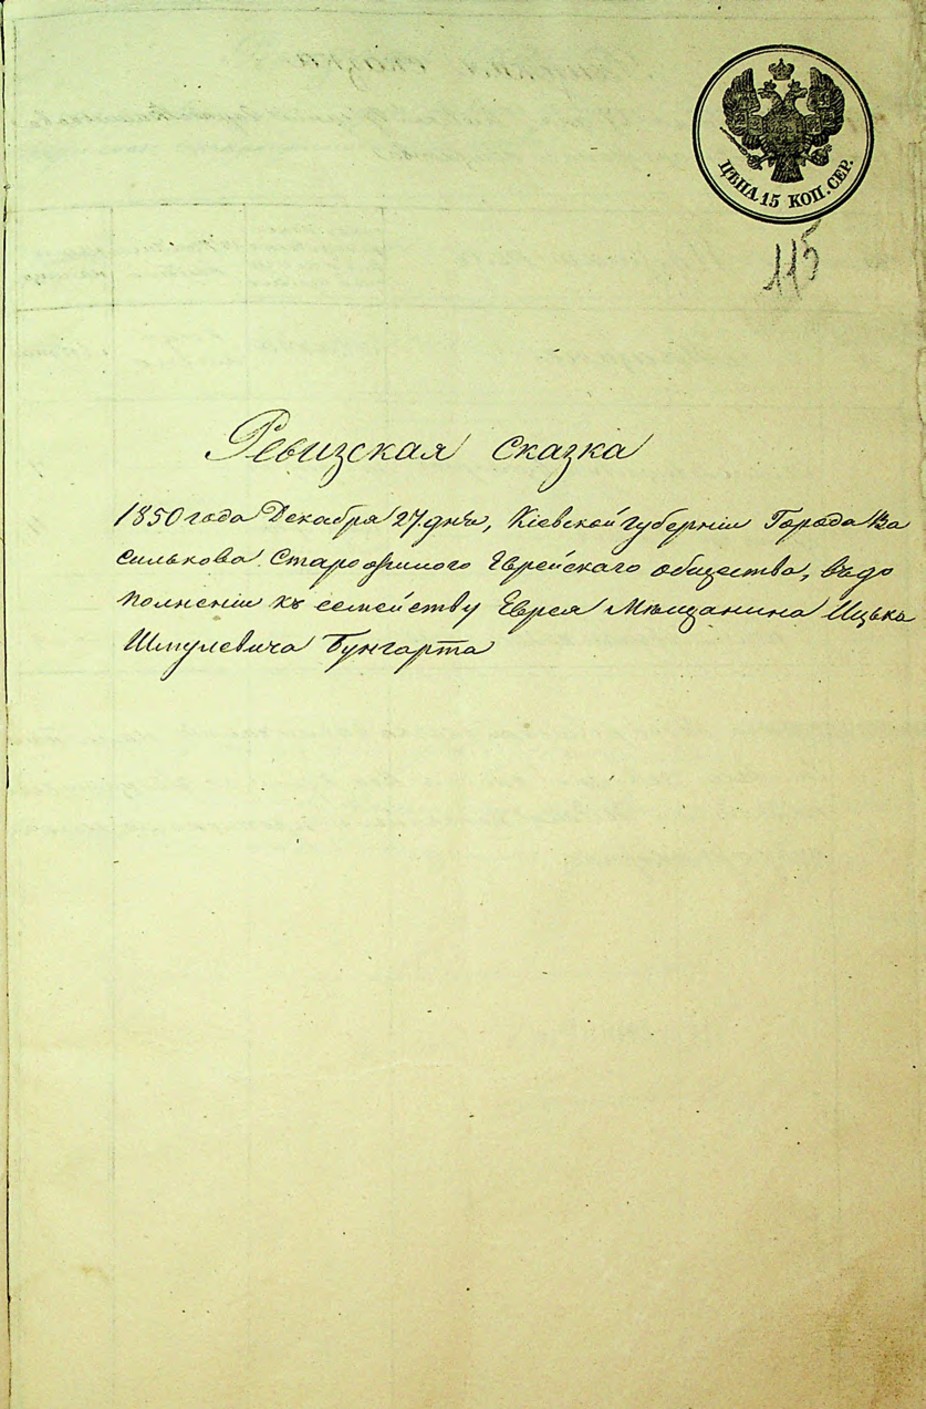 ЦѢНА 15 КОП. СЕР.
115
Ревизская сказка
1850 года Декабря 27 дня, Кіевской губерніи Города Ва
силькова Старожилого Еврейскаго общества, въ до
полненіи къ семейству Еврея Мѣщанина Ицька
Шмулевича Бунгарта